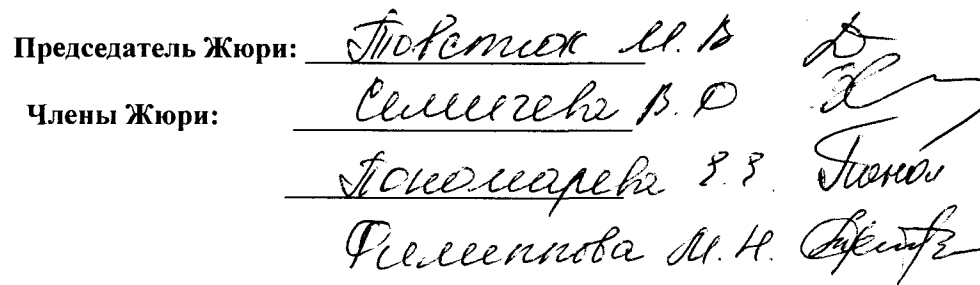 Председатель Жюри: Товстюк М. В
Члены Жюри: Семичева В. О
Пономарева Е. Е. Поном
Филиппова М. Н.